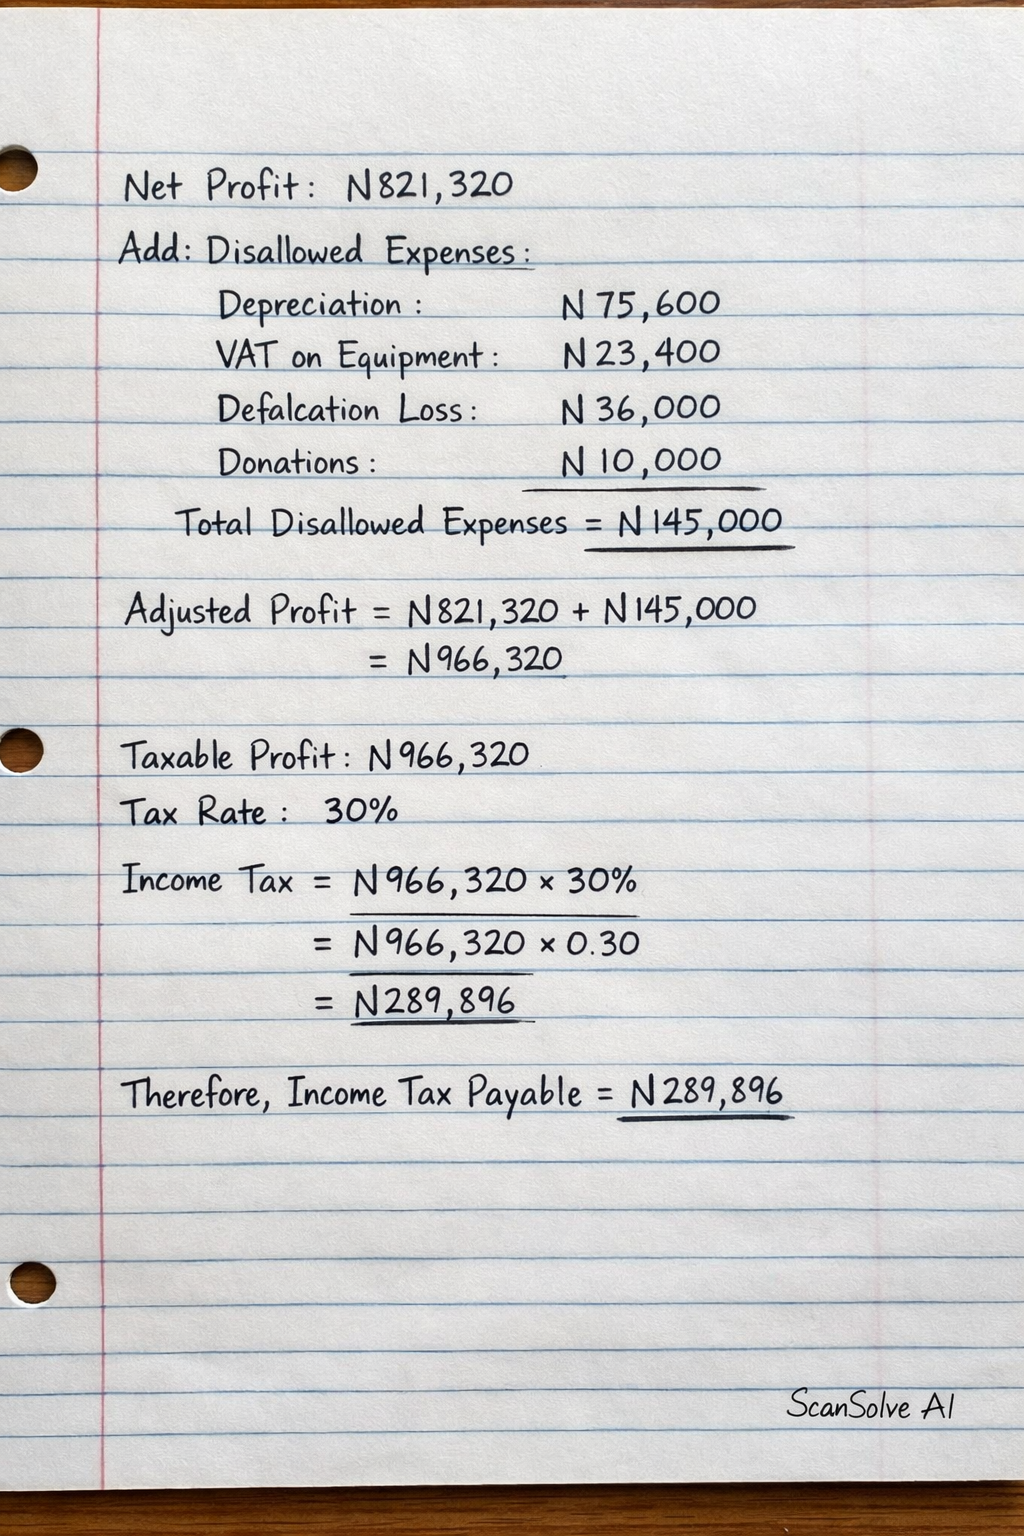 Net Profit: N821,320
Add: Disallowed Expenses:
Depreciation: N 75,600
VAT on Equipment: N 23,400
Defalcation Loss: N 36,000
Donations: N 10,000
Total Disallowed Expenses = N145,000
Adjusted Profit = N821,320 + N145,000
= N966,320
Taxable Profit: N966,320
Tax Rate: 30%
Income Tax = N966,320 × 30%
= N966,320 × 0.30
= N289,896
Therefore, Income Tax Payable = N289,896
ScanSolve AI